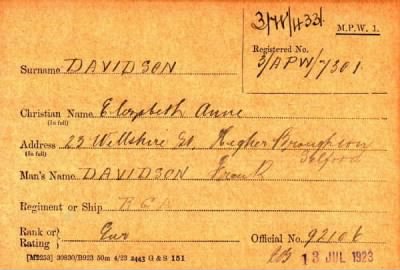 3/W/433/
M.P.W. 1.
Registered No.
3/APW/7301
Surname DAVIDSON
Christian Name Elizabeth Anne
(In full)
Address 23 Wellshire St. Higher Broughton
(In full) Salford
Man's Name DAVIDSON Frank
Regiment or Ship RGA
Rank or Rating Gnr Official No. 92106
[M2253] 30830/B923 50m 4/23 2443 G & S 151
13 JUL 1923